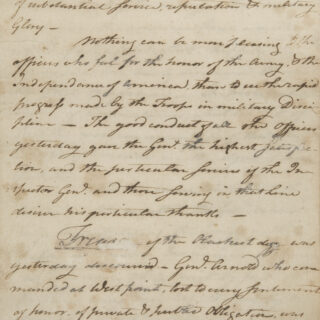 of substantial service, reputation & military
Glory —
Nothing can be more pleasing to the
officers who feel for the honor of the Army, & the
independance of America than to see the rapid
progress made by the Troops in military Disci
pline — The good conduct of all the Officers
yesterday gave the Genl. the highest satisfac
tion, and the particular service of the In
spector Genl. and those serving in that line
deserve his particular thanks —
Treason of the blackest dye was
yesterday discovered — Genl. Arnold who com
manded at West point, lost to every sentiment
of honor, of private & public Obligation, was